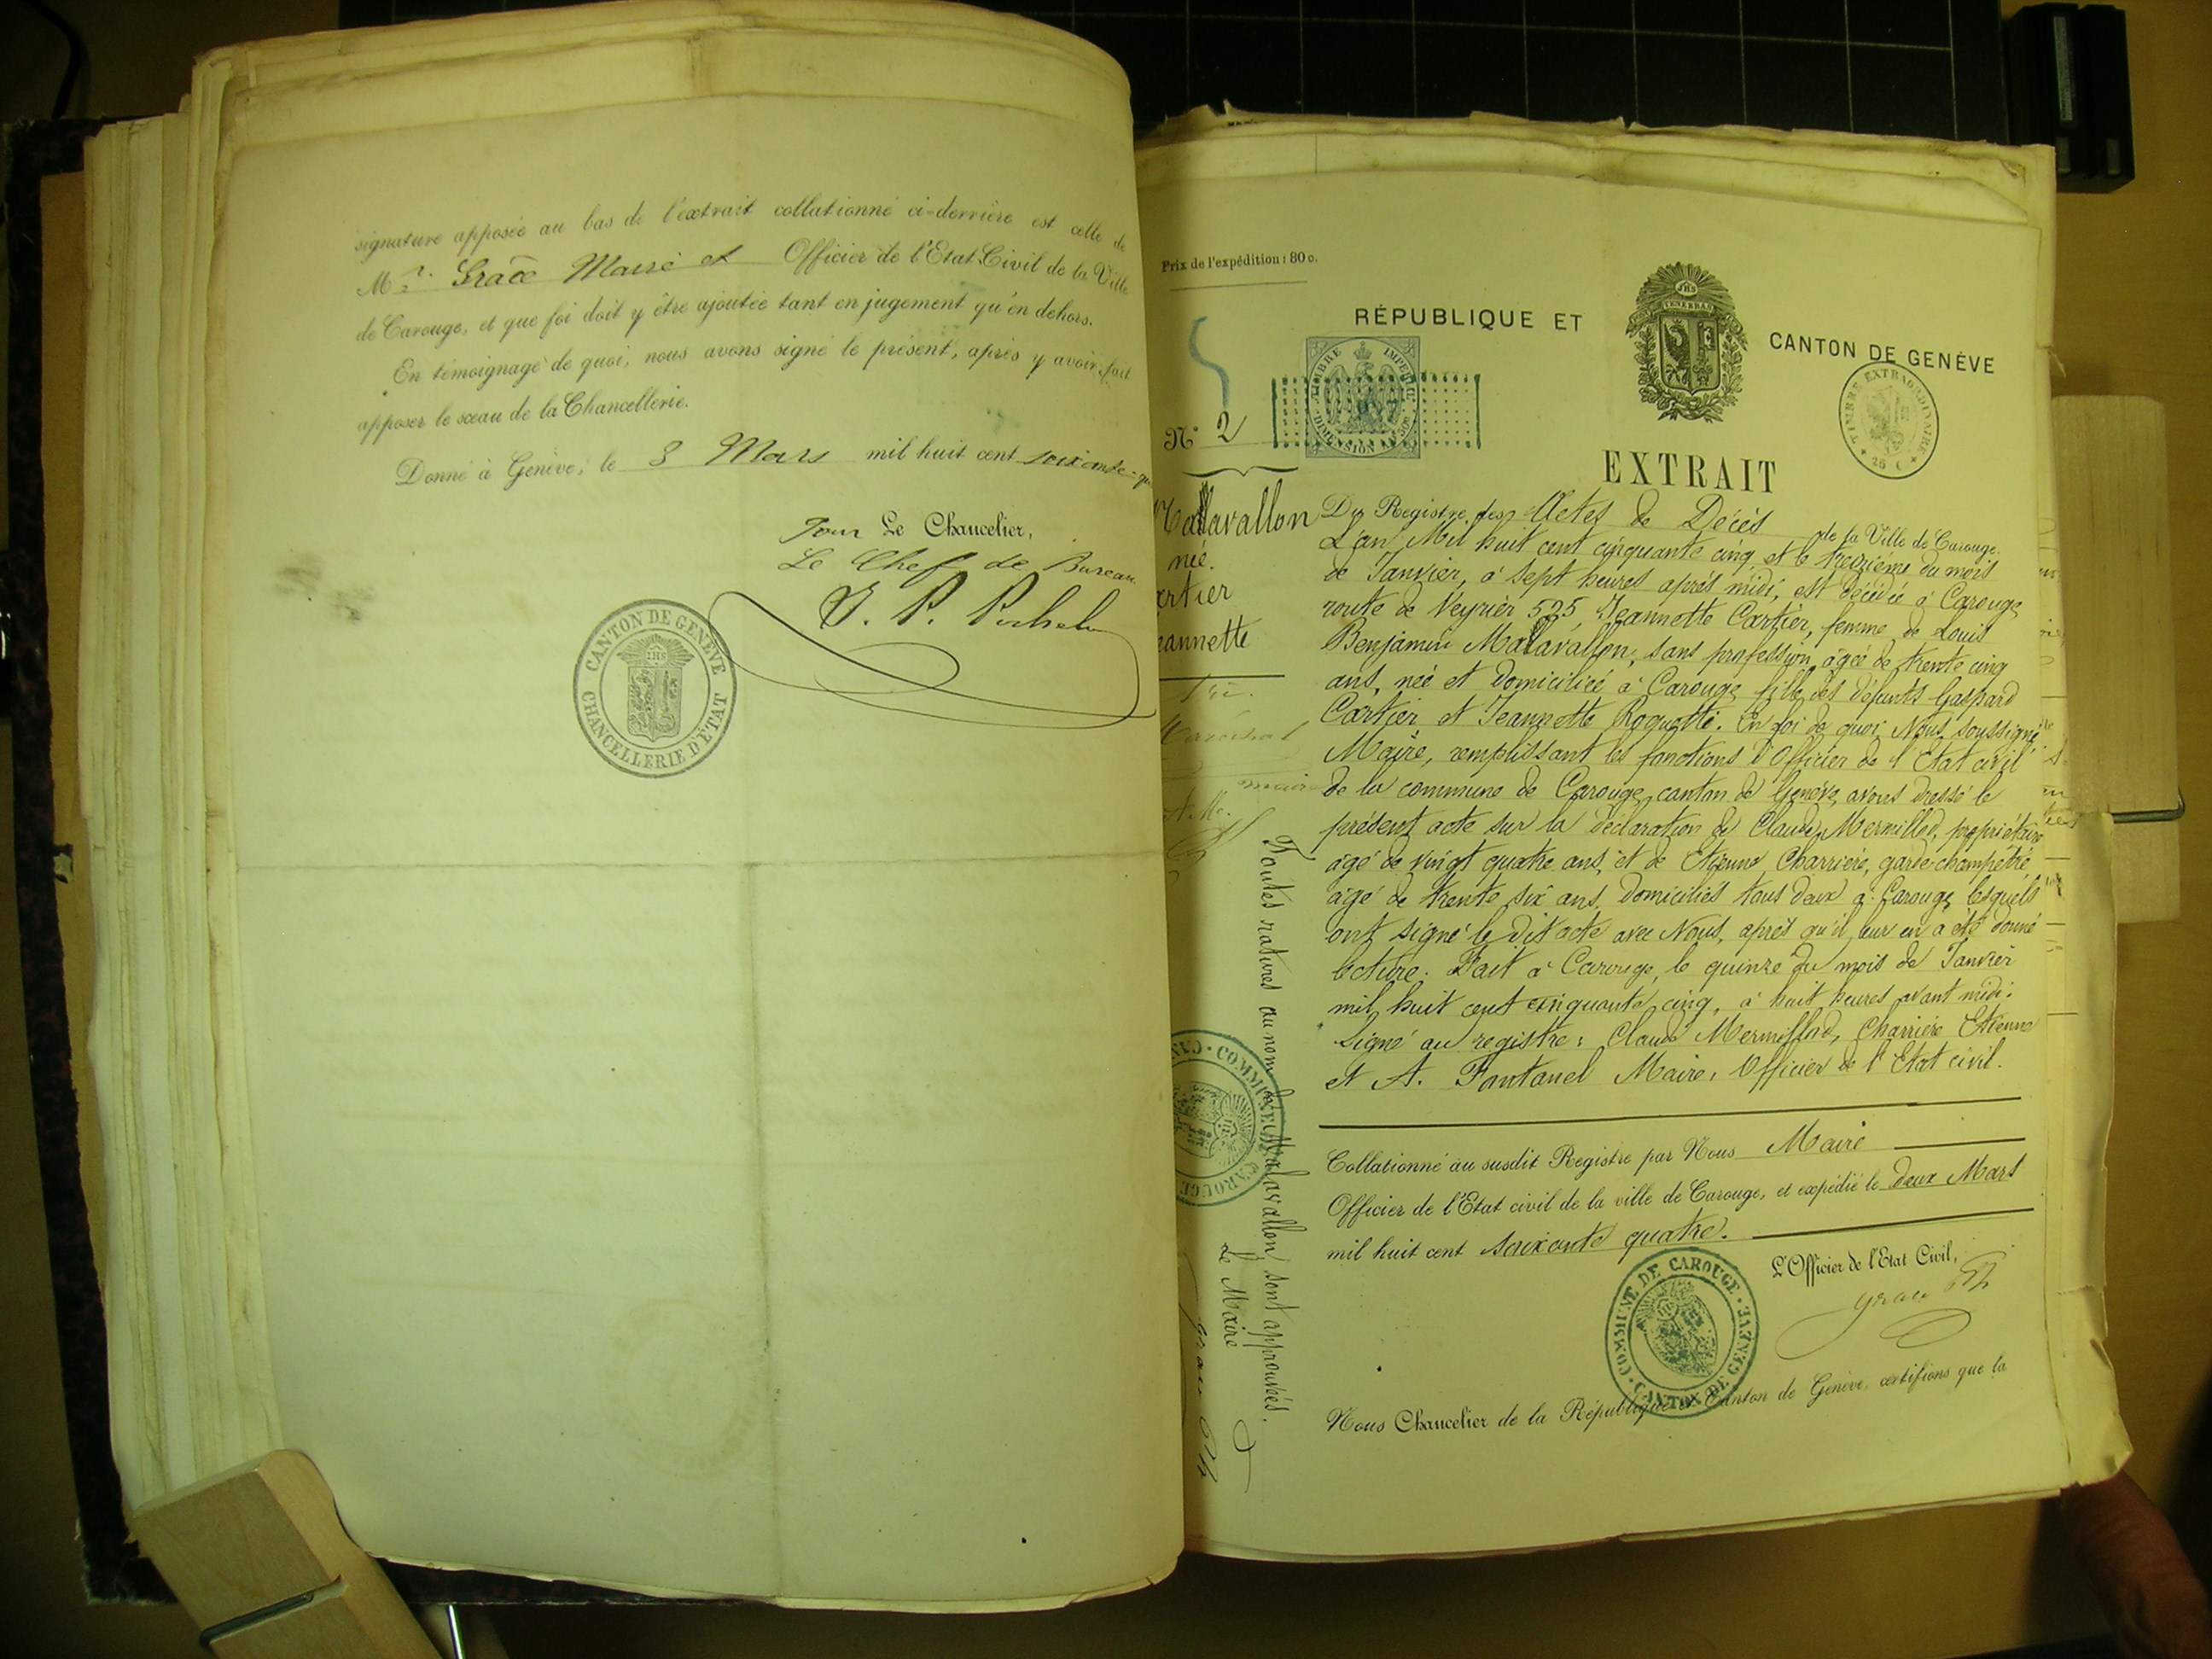 signature apposée au bas de l'extrait collationné ci-derrière est celle de
Mr. Grace Maire et Officier de l'Etat Civil de la Ville
de Carouge, et que foi doit y être ajoutée tant en jugement qu'en dehors.
En témoignage de quoi, nous avons signé le présent, après y avoir fait
apposer le sceau de la Chancellerie.
Donné à Genève, le 3 Mars mil huit cent soixante-qu
Pour Le Chancelier,
Le Chef de Bureau
CANTON DE GENÈVE
CHANCELLERIE D'ÉTAT
Prix de l'expédition: 80 c.
RÉPUBLIQUE ET CANTON DE GENÈVE
TIMBRE IMPÉRIAL
DIMENSION
TIMBRE EXTRAORDINAIRE
25 C
N° 2
EXTRAIT
Malavallon
née.
artier
eannette
Du Registre des Actes de Décès de la Ville de Carouge.
L'an Mil huit cent cinquante cinq et le treizième du mois
de Janvier, à sept heures après midi, est décédée à Carouge
route de Veyrier 525 Jeannette Cartier, femme de Louis
Benjamin Malavallon, sans profession, âgée de trente cinq
ans, née et domiciliée à Carouge fille des défunts Gaspard
Cartier et Jeannette Roguette. En foi de quoi Nous soussigné
Maire, remplissant les fonctions d'Officier de l'Etat civil
de la commune de Carouge, canton de Genève, avons dressé le
présent acte sur la déclaration de Claude Mermillod, propriétaire
âgé de vingt quatre ans, et de Etienne Charrière, garde-champêtre
âgé de trente six ans, domiciliés tous deux à Carouge, lesquels
ont signé le dit acte avec Nous, après qu'il leur en a été donné
lecture. Fait à Carouge, le quinze du mois de Janvier
mil huit cent cinquante cinq, à huit heures avant midi.
Signé au registre: Claude Mermillod, Charrière Etienne
et A. Fontanel Maire, Officier de l'Etat civil.
Collationné au susdit Registre par Nous Maire
Officier de l'Etat civil de la ville de Carouge, et expédié le deux Mars
mil huit cent soixante quatre.
L'Officier de l'Etat Civil,
COMMUNE DE CAROUGE
CANTON DE GENÈVE
Nous Chancelier de la République et Canton de Genève, certifions que la
Toutes ratures au nom de Malavallon, sont approuvées.
Le Maire